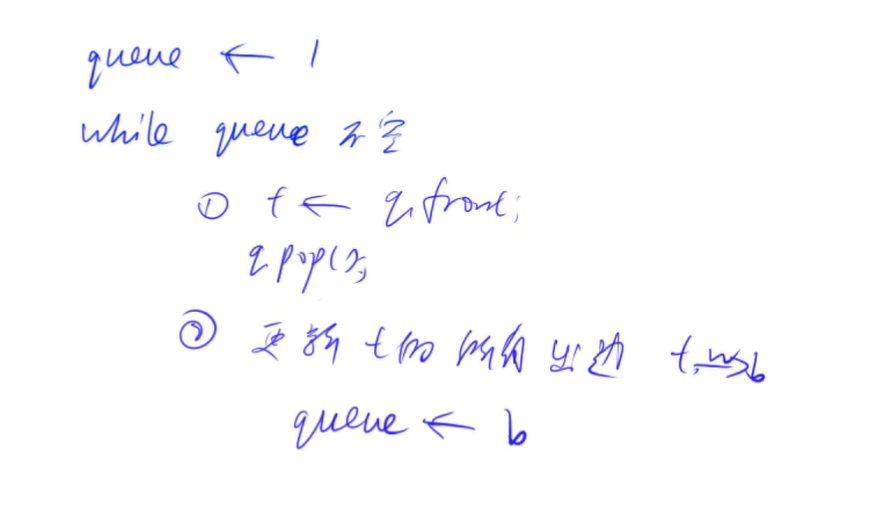 queue ← 1
while queue 不空
① t ← q.front;
q.pop();
② 更新 t的所有出边 t -w-> b
queue ← b